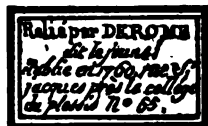 Relié par DEROME
dit le jeune
Etablie en 1760, rue St.
jacques près le collège
du plessis N° 65.